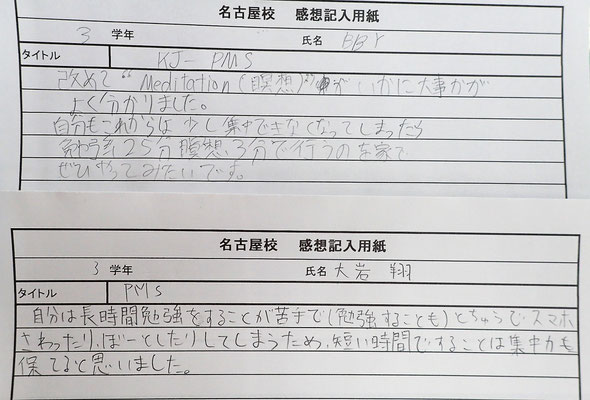 名古屋校 感想記入用紙
3 学年 氏名 BBY
タイトル KJ- PMS
改めて"Meditation(瞑想)"がいかに大事かが
よく分かりました。
自分もこれからは少し集中できなくなってしまったら
勉強25分瞑想3分で行うのを家で
ぜひやってみたいです。
名古屋校 感想記入用紙
3 学年 氏名 大岩 翔
タイトル PMS
自分は長時間勉強をすることが苦手で(勉強することも)とちゅうでスマホ
さわったり、ぼーとしたりしてしまうため、短い時間ですることは集中力も
保てると思いました。